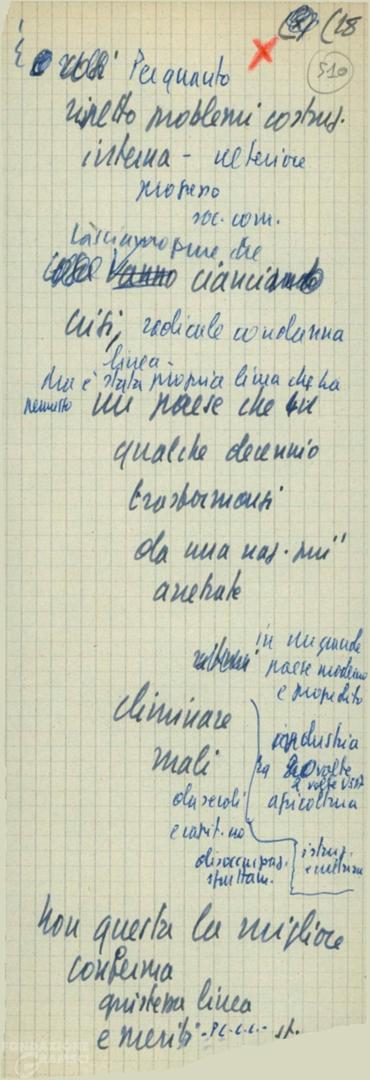 (18
510
Per quanto
rispetto problemi costruz.
interna - ulteriore
progresso
soc. com.
Lasciamo pure che
vanno cianciando
crisi, radicale condanna
linea -
Ma è stata propria linea che ha
permesso un paese che in
qualche decennio
trasformarsi
da una naz. più
arretrate
in un grande
paese moderno
e progredito
eliminare
mali
da secoli
e capit.mo
disoccupaz.
sfruttam.
industria
volte
volte USA
agricoltura
istruz.
e cultura
Non questa la migliore
conferma
giustezza linea
e meriti - P.C.C.C. - st.
FONDAZIONE
GRAMSCI